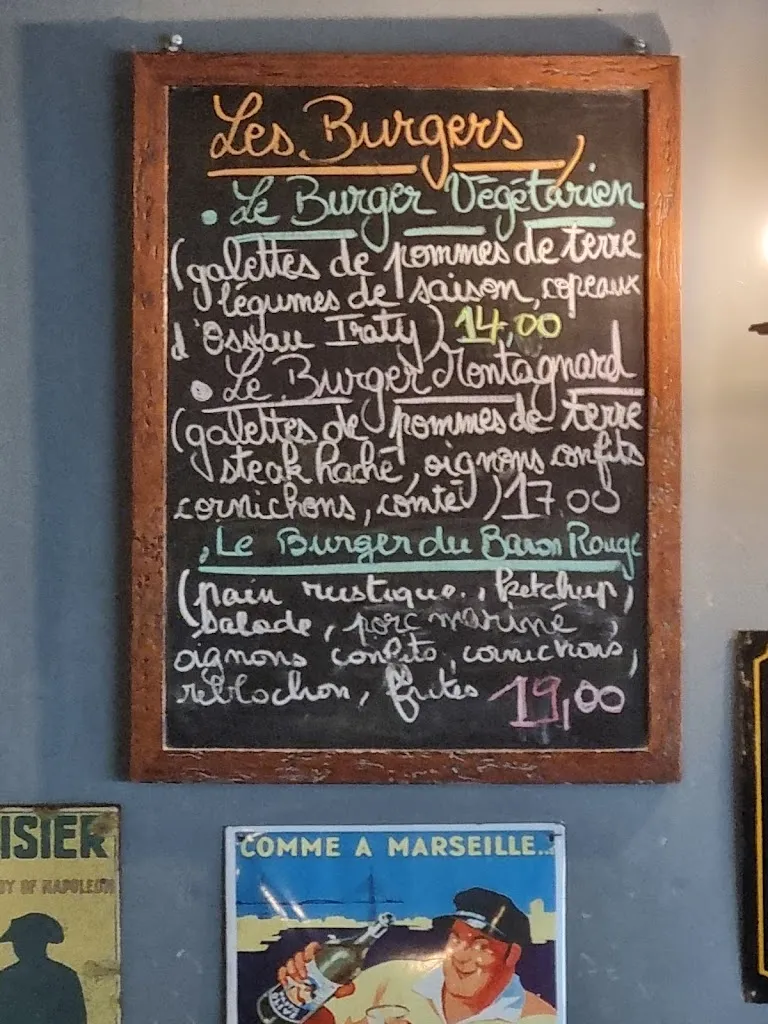 Les Burgers
• Le Burger Végétarien
(galettes de pommes de terre
légumes de saison, copeaux
d'Ossau Iraty) 14,00
• Le Burger Montagnard
(galettes de pommes de terre
steak haché, oignons confits
cornichons, comté) 17,00
Le Burger du Baron Rouge
(pain rustique, ketchup,
salade, porc mariné,
oignons confits, cornichons,
reblochon, frites 19,00
ISIER
DY OF NAPOLEON
COMME A MARSEILLE...